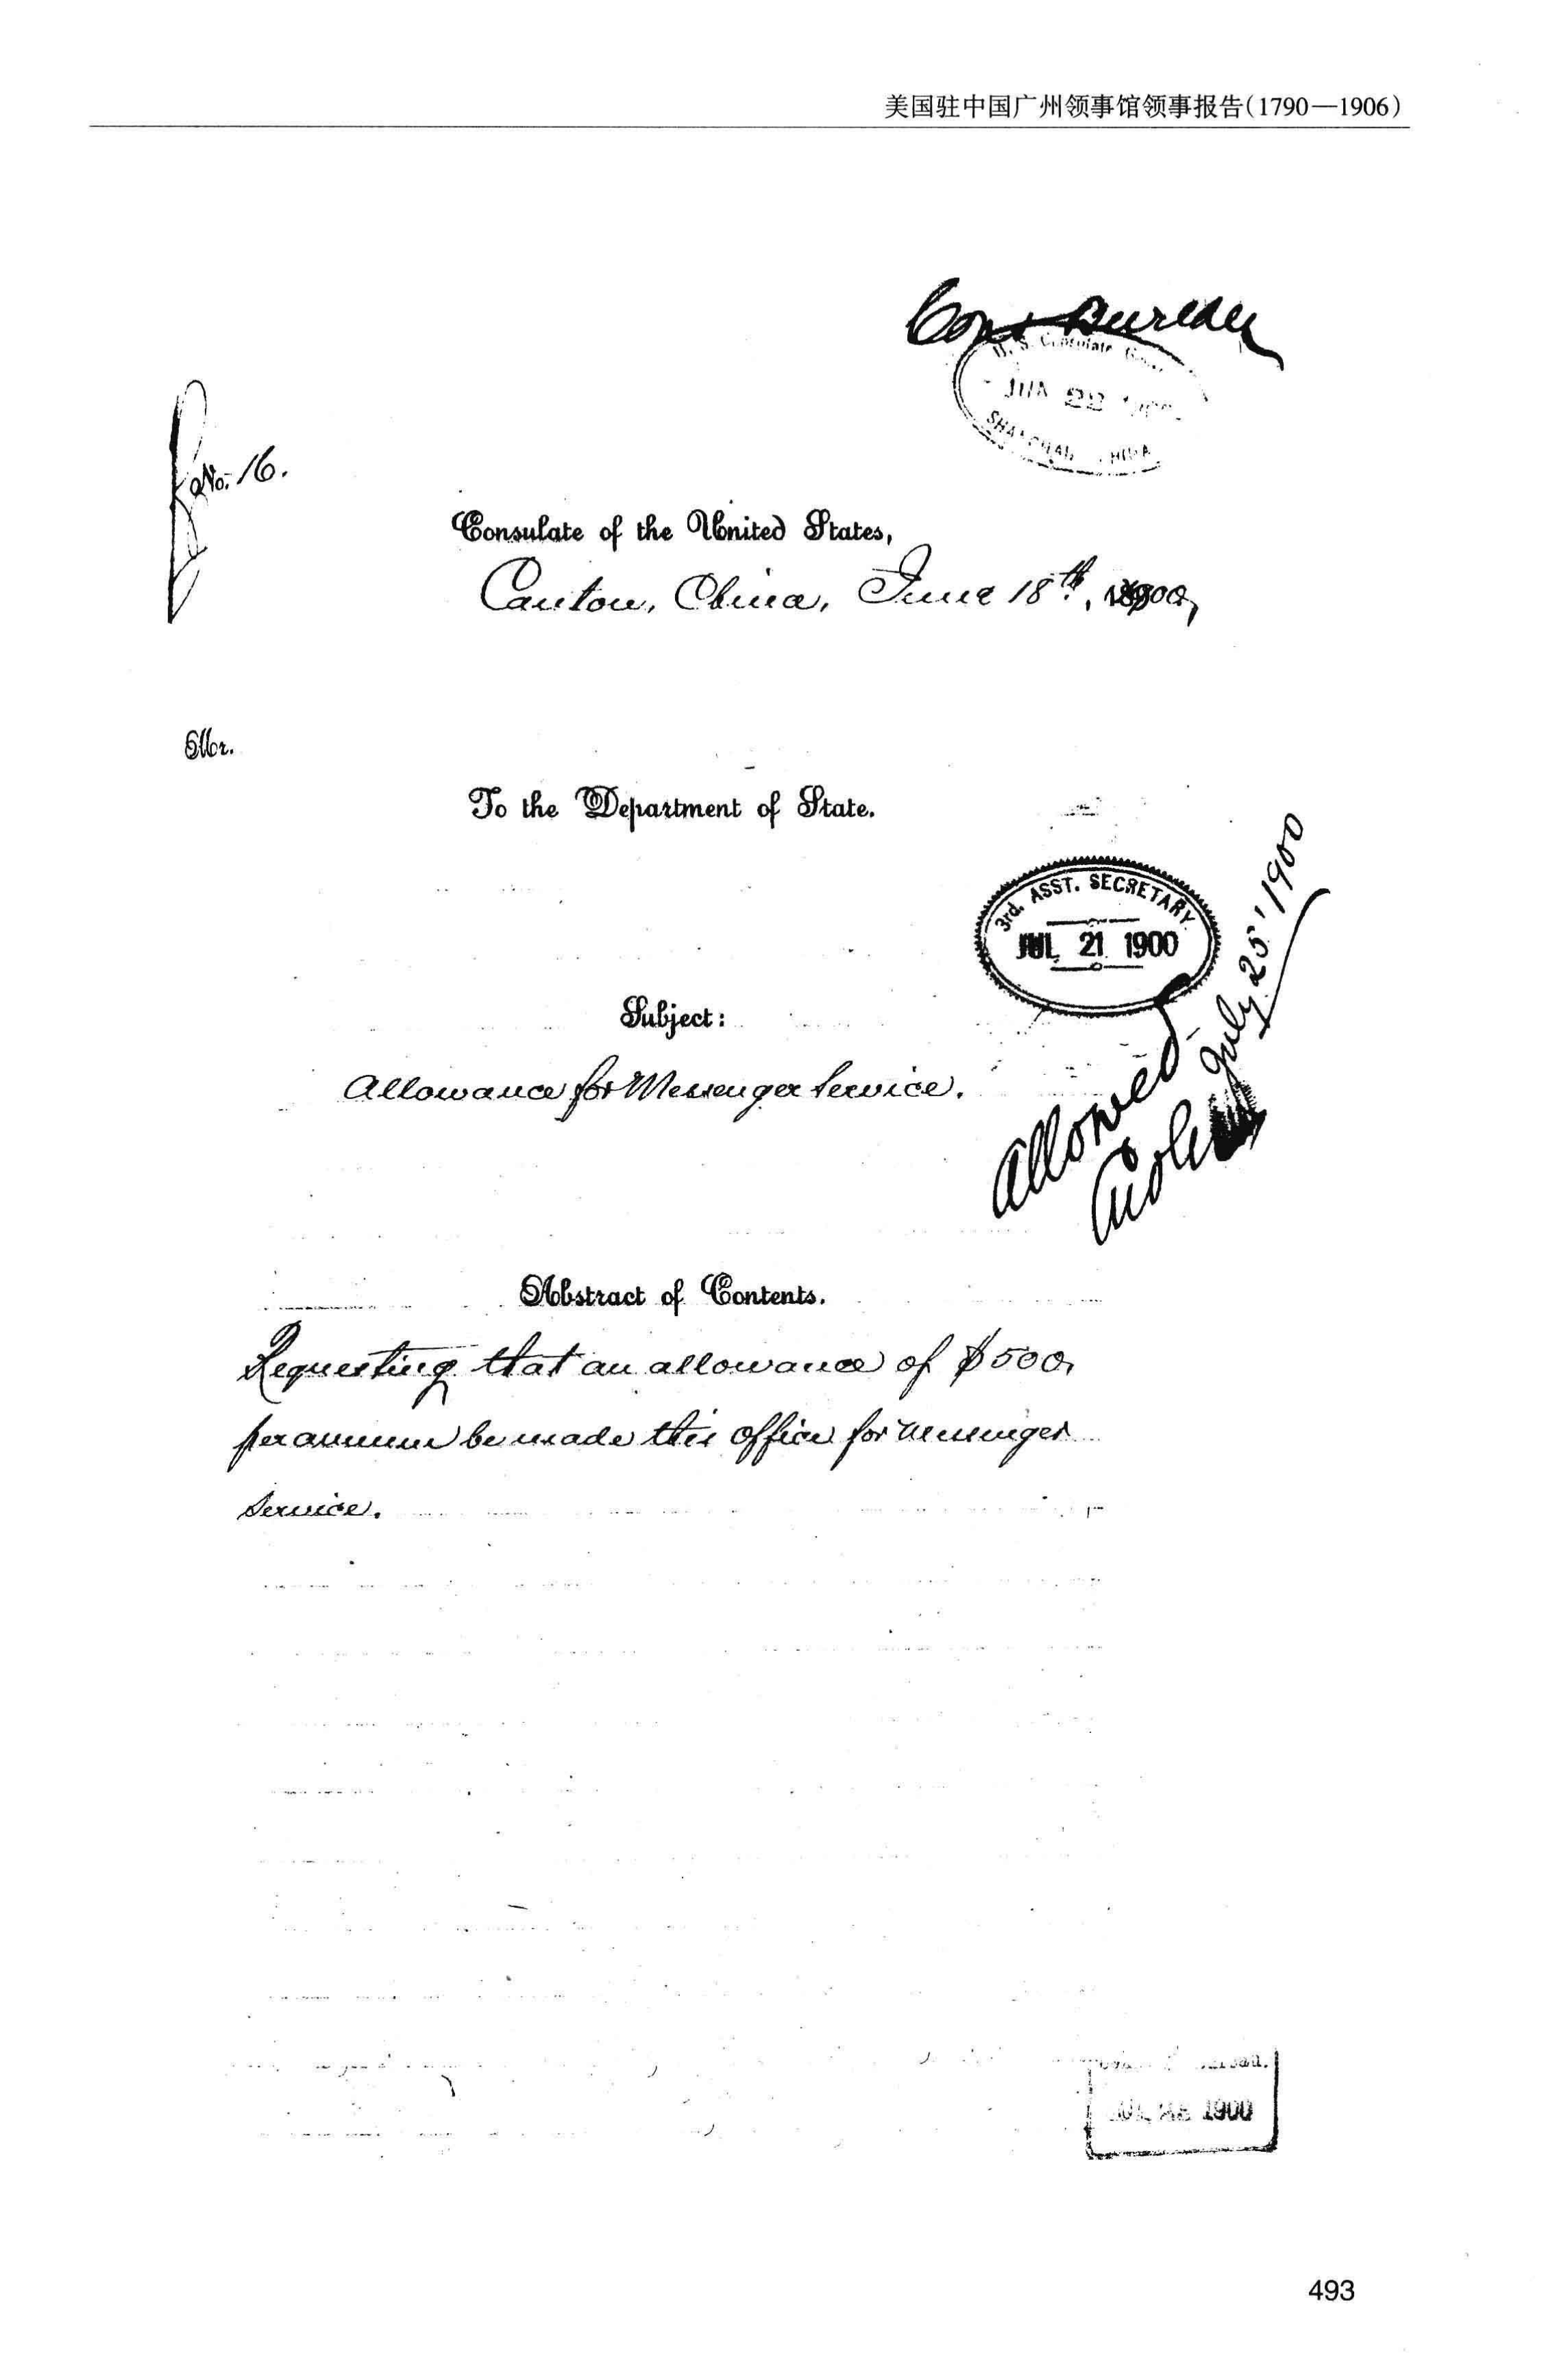 美国驻中国广州领事馆领事报告(1790—1906)
Cons Bureau
U. S. Consulate
22
SHANGHAI, CHINA
No. 16.
Consulate of the United States,
Canton, China, June 18th, 1900,
Mr.
To the Department of State.
3rd. ASST. SECRETARY
JUL 21 1900
Subject:
Allowance for Messenger Service.
Allowed
July 25' 1900
Abstract of Contents.
Requesting that an allowance of $500,
per annum be made this office for messenger
service.
1900
493